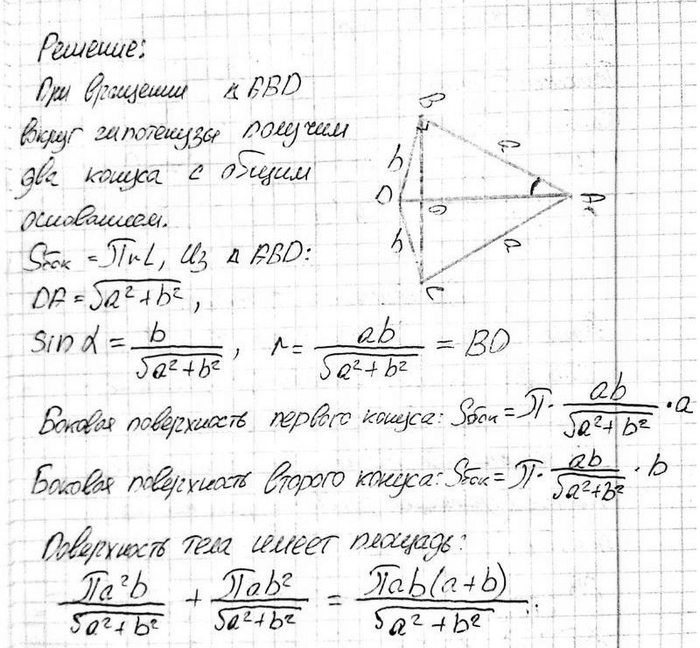 Решение:
При вращении △ABD
вокруг гипотенузы получим
два конуса с общим
основанием.
Sбок = πrL, Из △ABD:
DA = √(a²+b²),
sin α = b/√(a²+b²), r = ab/√(a²+b²) = BO
Боковая поверхность первого конуса: Sбок = π · ab/√(a²+b²) · a
Боковая поверхность второго конуса: Sбок = π · ab/√(a²+b²) · b
Поверхность тела имеет площадь:
πa²b/√(a²+b²) + πab²/√(a²+b²) = πab(a+b)/√(a²+b²).
B
a
b
D
O
A
b
a
C